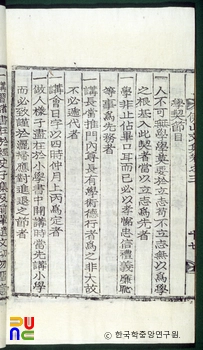 文集卷之三
契節目
一人不可無學學莫要於立志苟不立志無以爲學
之根基入此契者當以立志爲先者
一學非止佔畢口耳而已必以孝悌忠信禮義廉恥
等事爲先務者
一講長當推門內尊長有學術德行者爲之非大故
不必遞代者
一講會日字以四時仲月上丙爲定者
一做人樣子盡在於小學書中開講時當先講小學
而必致謹於灑掃應對進退之節者
ⓒ 한국학중앙연구원.